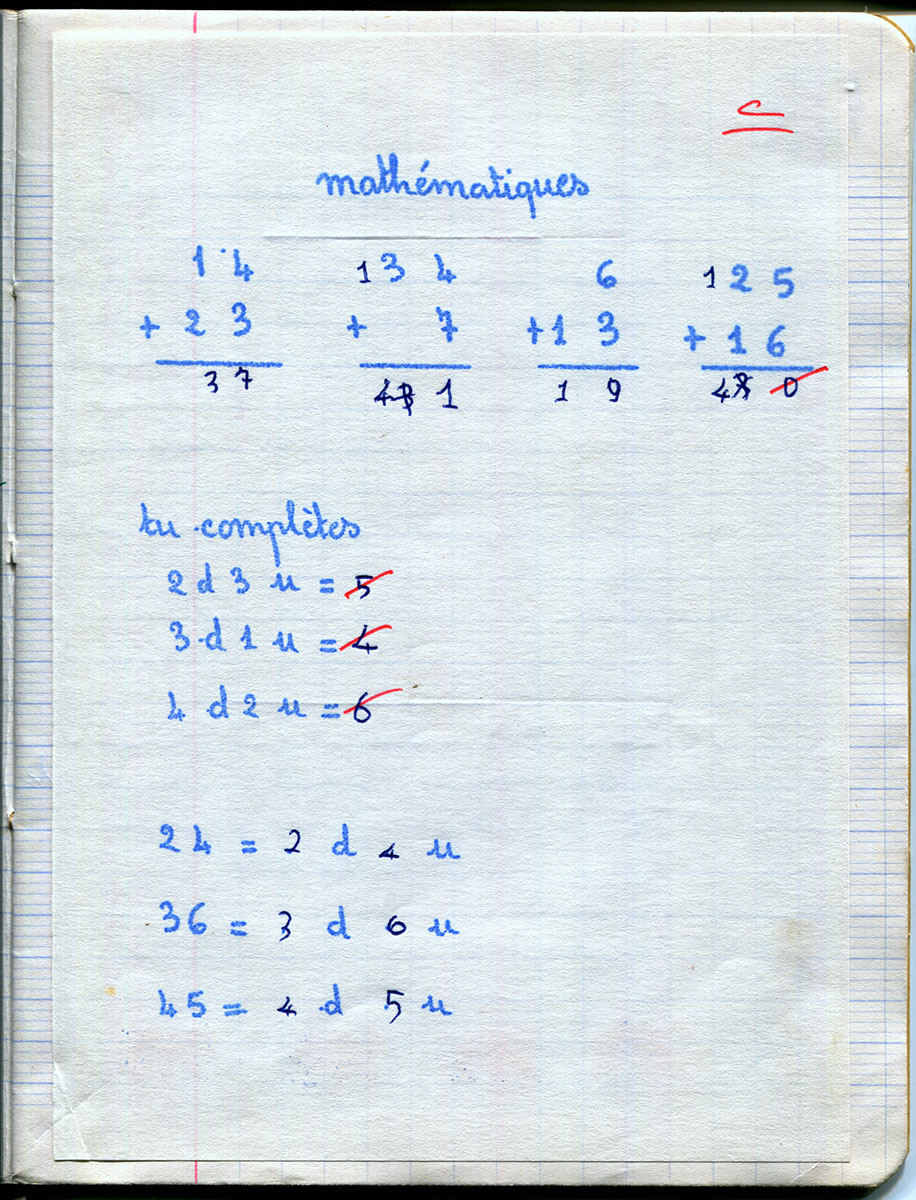 C
mathématiques
14 134 6 125
+ 23 + 7 + 13 + 16
37 4 1 19 4 0
tu complètes
2 d 3 u = 5
3 d 1 u = 4
4 d 2 u = 6
24 = 2 d 4 u
36 = 3 d 6 u
45 = 4 d 5 u